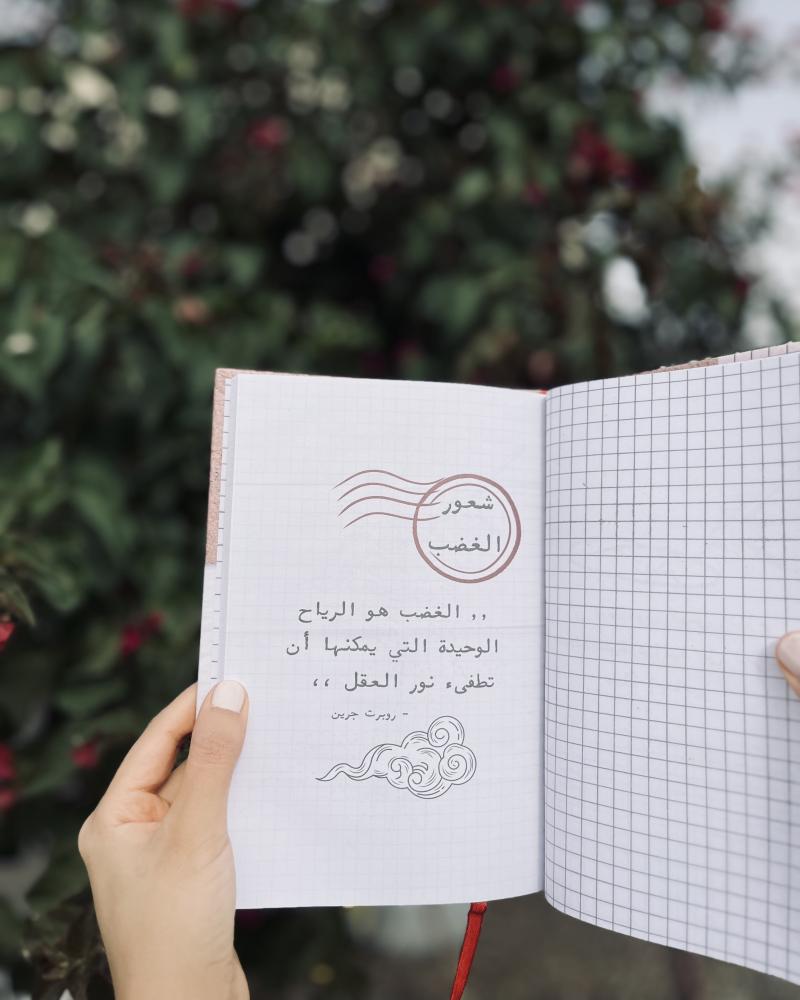 شعور
الغضب
,, الغضب هو الرياح
الوحيدة التي يمكنها أن
تطفىء نور العقل ،،
- روبرت جرين